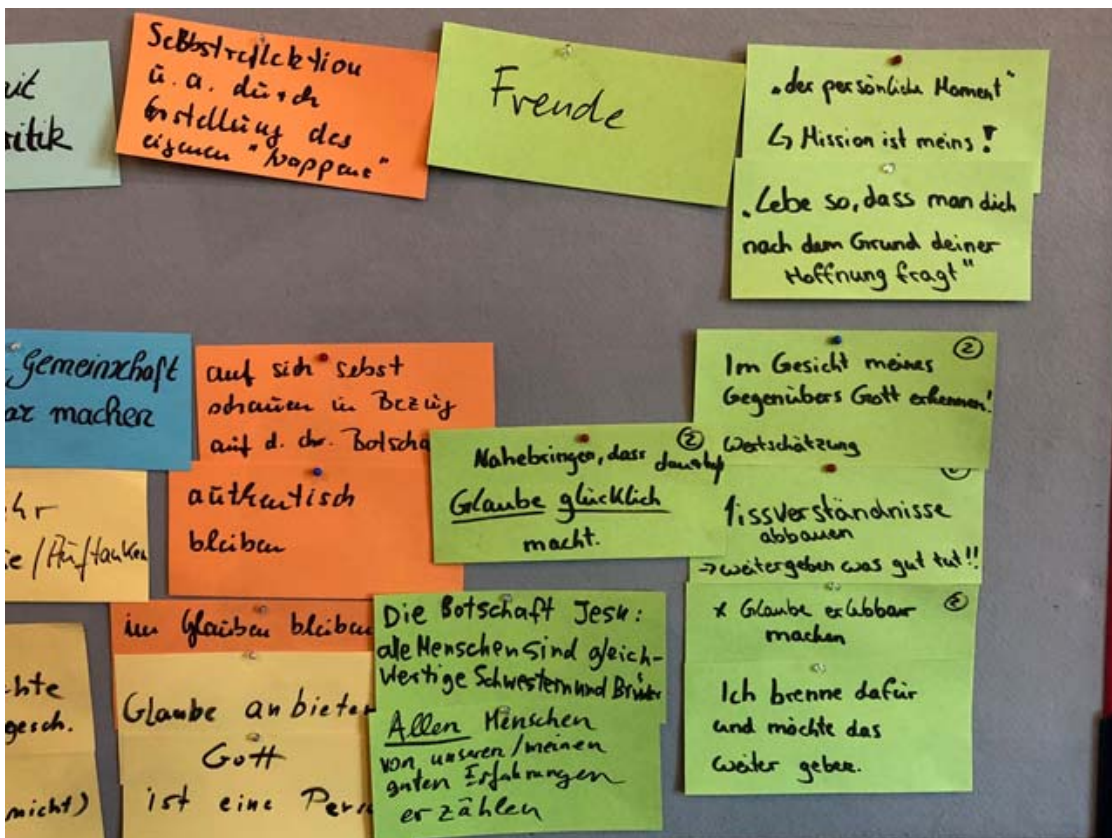 it
ritik
Selbstreflektion
u. a. durch
Erstellung des
eigenen "Wappens"
Freude
„der persönliche Moment“
↳ Mission ist meins!
„Lebe so, dass man dich
nach dem Grund deiner
Hoffnung fragt“
Gemeinschaft
ar machen
auf sich selbst
schauen in Bezug
auf d. chr. Botscha
authentisch
bleiben
②
Nahebringen, dass
Glaube glücklich
macht.
②
Im Gesicht meines
Gegenübers Gott erkennen!
Wertschätzung
issverständnisse
abbauen
→ weitergeben was gut tut!!
②
x Glaube erlebbar
machen
Ich brenne dafür
und möchte das
weiter geben.
hr
e / Auftanken
im Glauben bleiben
Glaube anbieten
Gott
ist eine Pers
Die Botschaft Jesu:
alle Menschen sind gleich-
wertige Schwestern und Brüder
Allen Menschen
von unseren / meinen
guten Erfahrungen
erzählen
hte
gesch.
nicht)